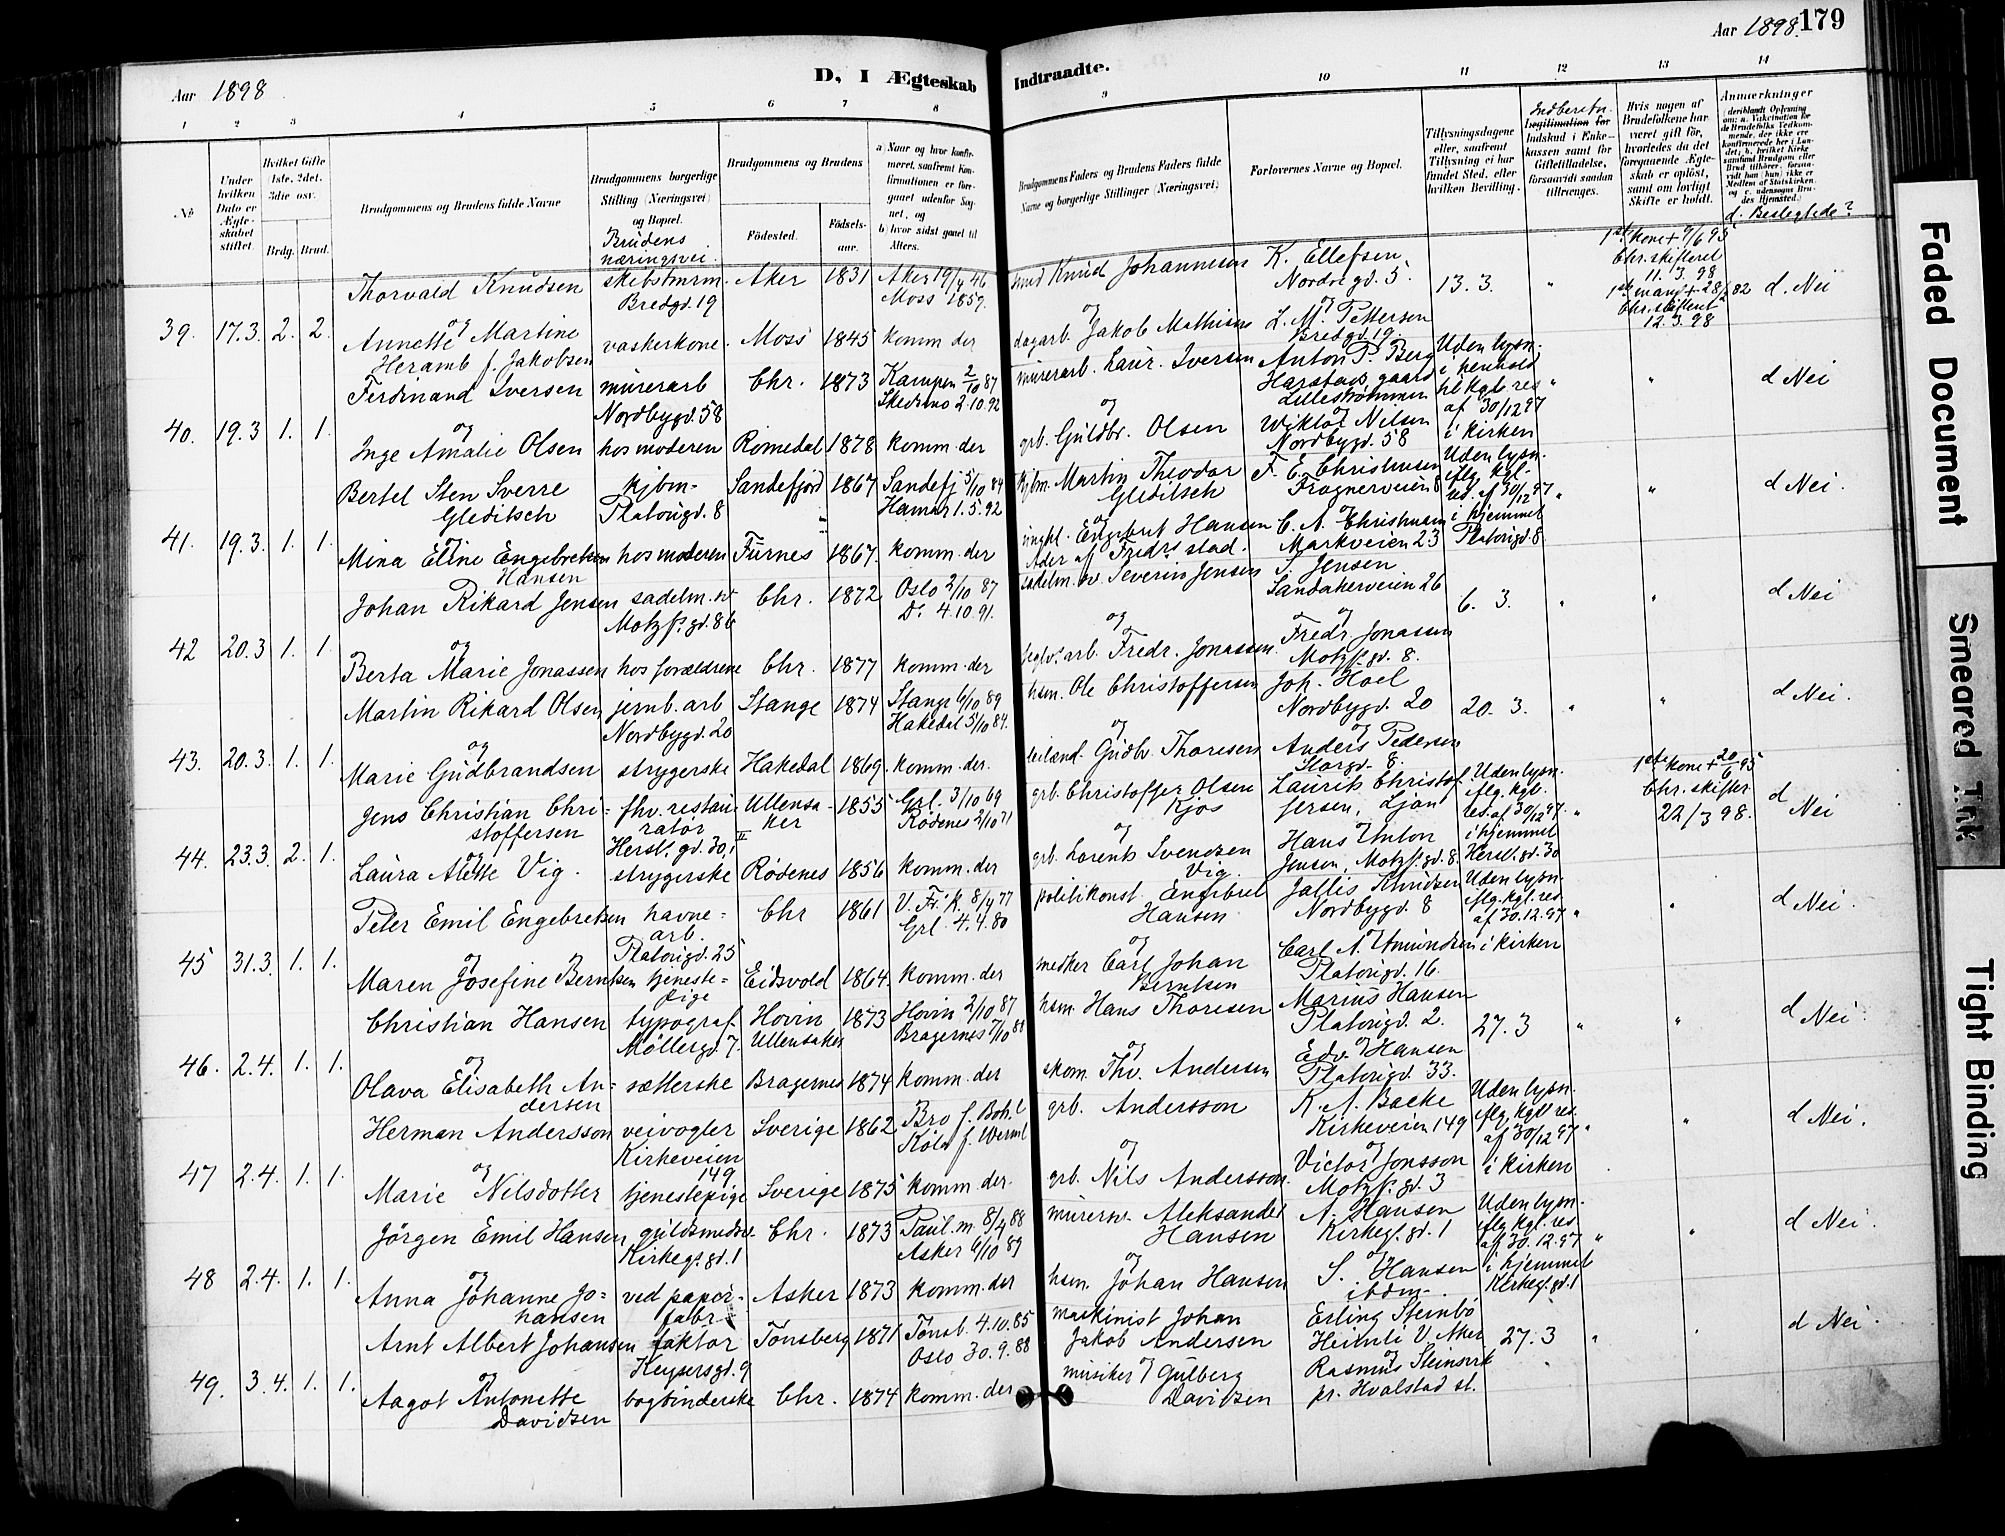 Aar 1898
D, I Ægteskab Indtraadte.
Aar 1898. 179
1 2 3 4 5 6 7 8 9 10 11 12 13 14
No
Under hvilken Dato er Ægteskabet stiftet.
Hvilket Gifte (1ste, 2det, 3die osv.
Brdg. Brud.
Brudgommens og Brudens fulde Navne
Brudgommens borgerlige Stilling (Næringsvei) og Bopæl.
Brudens næringsvei.
Brudgommens og Brudens
Födested. Födselsaar.
a) Naar og hvor konfirmeret, saafremt Konfirmationen er foregaaet udenfor Sognet, og
b) hvor sidst gaaet til Alters.
Brudgommens Faders og Brudens Faders fulde Navne og borgerlige Stillinger (Næringsvei)
Forlovernes Navne og Bopæl.
Tillysningsdagene eller, saafremt Tillysning ei har fundet Sted, efter hvilken Bevilling.
Indberetn.
Legitimation for Indskud i Enkekassen samt for Giftetilladelse, forsaavidt saadan tiltrænges.
Hvis nogen af Brudefolkene har været gift för, hvorledes da det foregaaende Ægteskab er oplöst, samt om lovligt Skifte er holdt.
Anmærkninger
d. Beslegtede?
39. 17.3. 2. 2.
Thorvald Knudsen
Bredgd. 19
Aker 1831 Aker 19/4 46
Moss 1859.
smed Knud Johannesen
K. Ellefsen,
Nordregd. 5.
13. 3.
1ste kone + 9/6 95
Chr. skifteret
11. 3. 98
d. Nei
og
Annette Martine
Heramb f. Jakobsen
vaskerkone Moss 1845 komm. der
og
dagarb. Jakob Mathisen
og
L. M. Pettersen
Bredgd. 19.
Chr. skifteret
12.3.98
40. 19.3 1. 1.
Ferdinand Iversen
murerarb
Nordbygd. 58
Chr. 1873 Kampen 2/10 87
Skedsmo 2.10.92
murerarb. Laur. Iversen
Anton P. Berg
Lillestrømmen
Uden lysn.
i henhold
til kgl. res
af 30/12 97
i kirken
d Nei
og
Inge Amalie Olsen
hos moderen Romedal 1878 komm. der
og
grb. Guldbr. Olsen
Wiktor Nilsen
Nordbygd. 58
41. 19.3. 1. 1.
Bertel Sten Sverre
Gleditsch
kjbm.
Platousgd. 8
Sandefjord 1867 Sandefj 5/10 84
Hamar 1.5.92
kjbm. Martin Theodor
Gleditsch
F. E. Christensen
Frognerveien 8
Uden lysn.
iflg. kgl.
res. af 30/12 97
i hjemmet
Platousgd. 8
d Nei.
og
Mina Eline Engebretsen
Hansen
hos moderen Furnes 1867. komm. der
og
Engebret Hansen
Markveien 23
42 20.3 1. 1.
Johan Rikard Jensen
sadelm. sv
Motzf. gd. 8b
Chr. 1872 Oslo 2/10 87
Do. 4.10.91.
sadelm. sv. Severin Jensen
S. Jensen
Sandakerveien 26
6. 3.
d Nei
og
Berta Marie Jonassen
hos forældrene Chr. 1877 komm. der
og
Fredr. Jonassen
og
Fredr. Jonassen
Motzf. gd. 8.
43. 20.3. 1. 1.
Martin Rikard Olsen
jernb. arb
Nordbygd. 20
Stange 1874 Stange 6/10 89
hsm. Ole Christoffersen
Joh. Hoel
Nordbygd. 20
20. 3.
d Nei.
og
Marie Gudbrandsen
strygerske Hakedal 1869. komm. der.
og
Gudbr. Thoresen
og
Anders Pedersen
Storgd. 8.
44. 23.3. 2. 1.
Jens Christian Chri-
stoffersen
fhv. restau-
ratör
Hersl. gd. 30, II
Ullensa-
ker
1855 Grl. 3/10 69
Rödenes 2/10 71
grb. Christoffer Olsen
Kjos
Laurits Christof-
fersen, Ljan
Uden lysn.
iflg. kgl.
res. af 30/12 97.
i hjemmet
Hersl. gd. 30
1ste kone + 20/6 95
Chr. skifter
22/3 98.
d Nei
og
Laura Alette Vig.
strygerske Rödenes 1856 komm. der
og
grb. Lorents Svendzen
Vig.
Hans Anton
Jensen, Motzf. gd. 8.
45 31.3. 1. 1.
Peter Emil Engebretsen
havne-
arb.
Platousgd. 25
Chr 1861 V. Fr. k. 8/4 77
Grl. 4.4.80
politikonst. Engebret
Hansen
Jallis Knudsen
Nordbygd. 8
Uden lysn.
iflg. kgl. res.
af 30.12.97
i kirken
d Nei.
og
Maren Josefine Berntsen
tjeneste-
pige
Eidsvold 1864. komm. der
og
Carl Johan
Berntsen
Carl A. Amundsen
Platousgd. 16.
46. 2.4. 1. 1.
Christian Hansen
typograf
Möllergd. 7.
Hovin
Ullensaker
1873 Hovin 2/10 87
hsm. Hans Thoresen
Marius Hansen
Platousgd. 2.
27. 3
d Nei
og
Olava Elisabeth An-
dersen
sætterske Bragernes 1874 komm. der
og
skom. Thv. Andersen
Edv. Hansen
Platousgd. 33.
47 2.4. 1. 1.
Herman Andersson
veivogter
Kirkeveien
149
Sverige 1862 Bro f. Boh. l
Köla f. Werml
grb. Andersson
K. A. Backe
Kirkeveien 149
Uden lysn.
iflg. kgl. res.
af 30/12 97
i kirken
d Nei.
og
Marie Nelsdotter
tjenestepige Sverige 1875 komm. der.
og
grb. Nils Andersson
Victor Jonsson
Motzf. gd. 3
48 2.4. 1. 1.
Jörgen Emil Hansen
guldsmedsv.
Kirkeg. gd. 1
Chr. 1873 Paul. m. 8/4 88
Asker 6/10 89
murerm. Aleksander
Hansen
A. Hansen
Kirkeg. gd. 1
Uden lysn.
iflg. kgl. res
af 30. 12. 97
i hjemmet
Kirkeg. gd. 1
d Nei.
og
Anna Johanne Jo-
hansen
ved papir-
fabr.
Asker 1873 komm. der
og
hsm. Johan Hansen
S. Hansen
ibdm.
49. 3.4. 1. 1.
Arnt Albert Johansen
faktor
Keysersgd. 9
Tönsberg 1871 Tönsb. 4.10.85
Oslo 30.9.88
maskinist Johan
Jakob Andersen
Erling Steinbö
Heimli V. Aker
27. 3
d Nei.
og
Aagot Antonette
Davidsen
bogbinderske Chr. 1874 komm. der
musiker Gulberg
Davidzen
og
pr. Hvalstad st.
Faded Document
Smeared Ink
Tight Binding